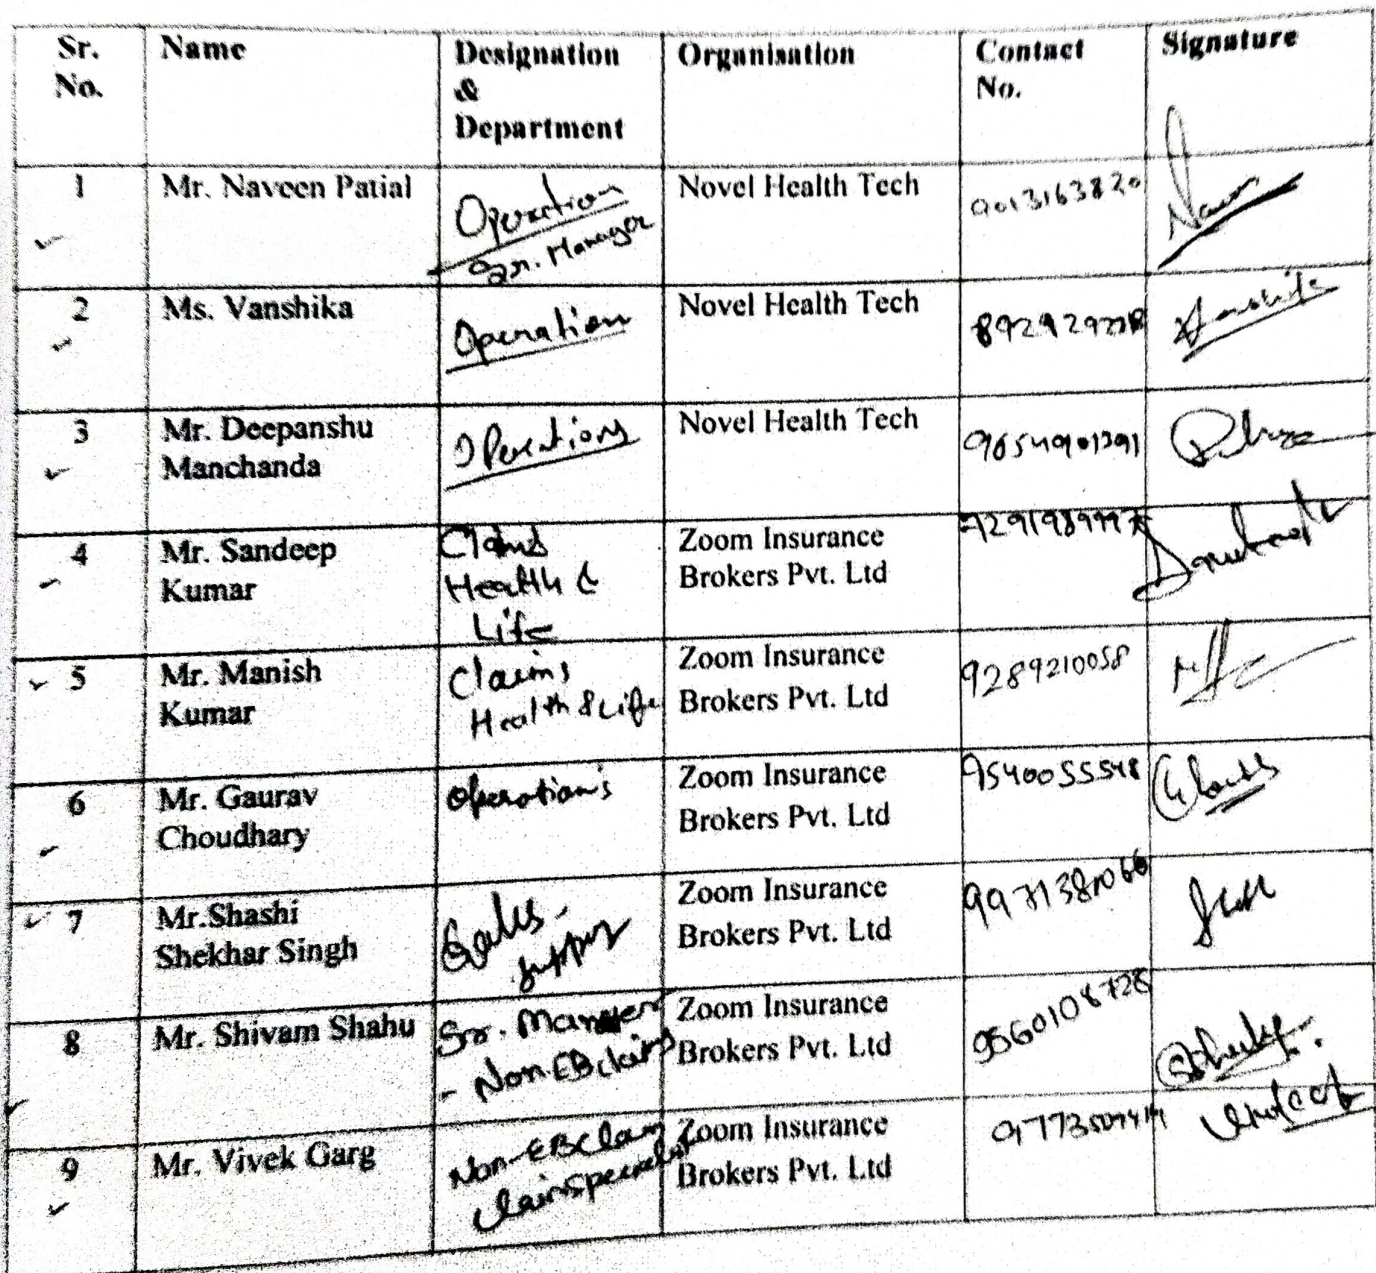 Sr. No. Name Designation & Department Organisation Contact No. Signature
1 Mr. Naveen Patial Operation Sr. Manager Novel Health Tech 9013163820
2 Ms. Vanshika Operation Novel Health Tech
3 Mr. Deepanshu Manchanda Operations Novel Health Tech
4 Mr. Sandeep Kumar Claims Health & Life Zoom Insurance Brokers Pvt. Ltd
5 Mr. Manish Kumar Claims Health & Life Zoom Insurance Brokers Pvt. Ltd 9289210058
6 Mr. Gaurav Choudhary operation's Zoom Insurance Brokers Pvt. Ltd 9540055548
7 Mr.Shashi Shekhar Singh Sales Zoom Insurance Brokers Pvt. Ltd
8 Mr. Shivam Shahu Sr. Manager - Non EB claims Zoom Insurance Brokers Pvt. Ltd 9560108728
9 Mr. Vivek Garg Non-EB Claim Zoom Insurance Brokers Pvt. Ltd